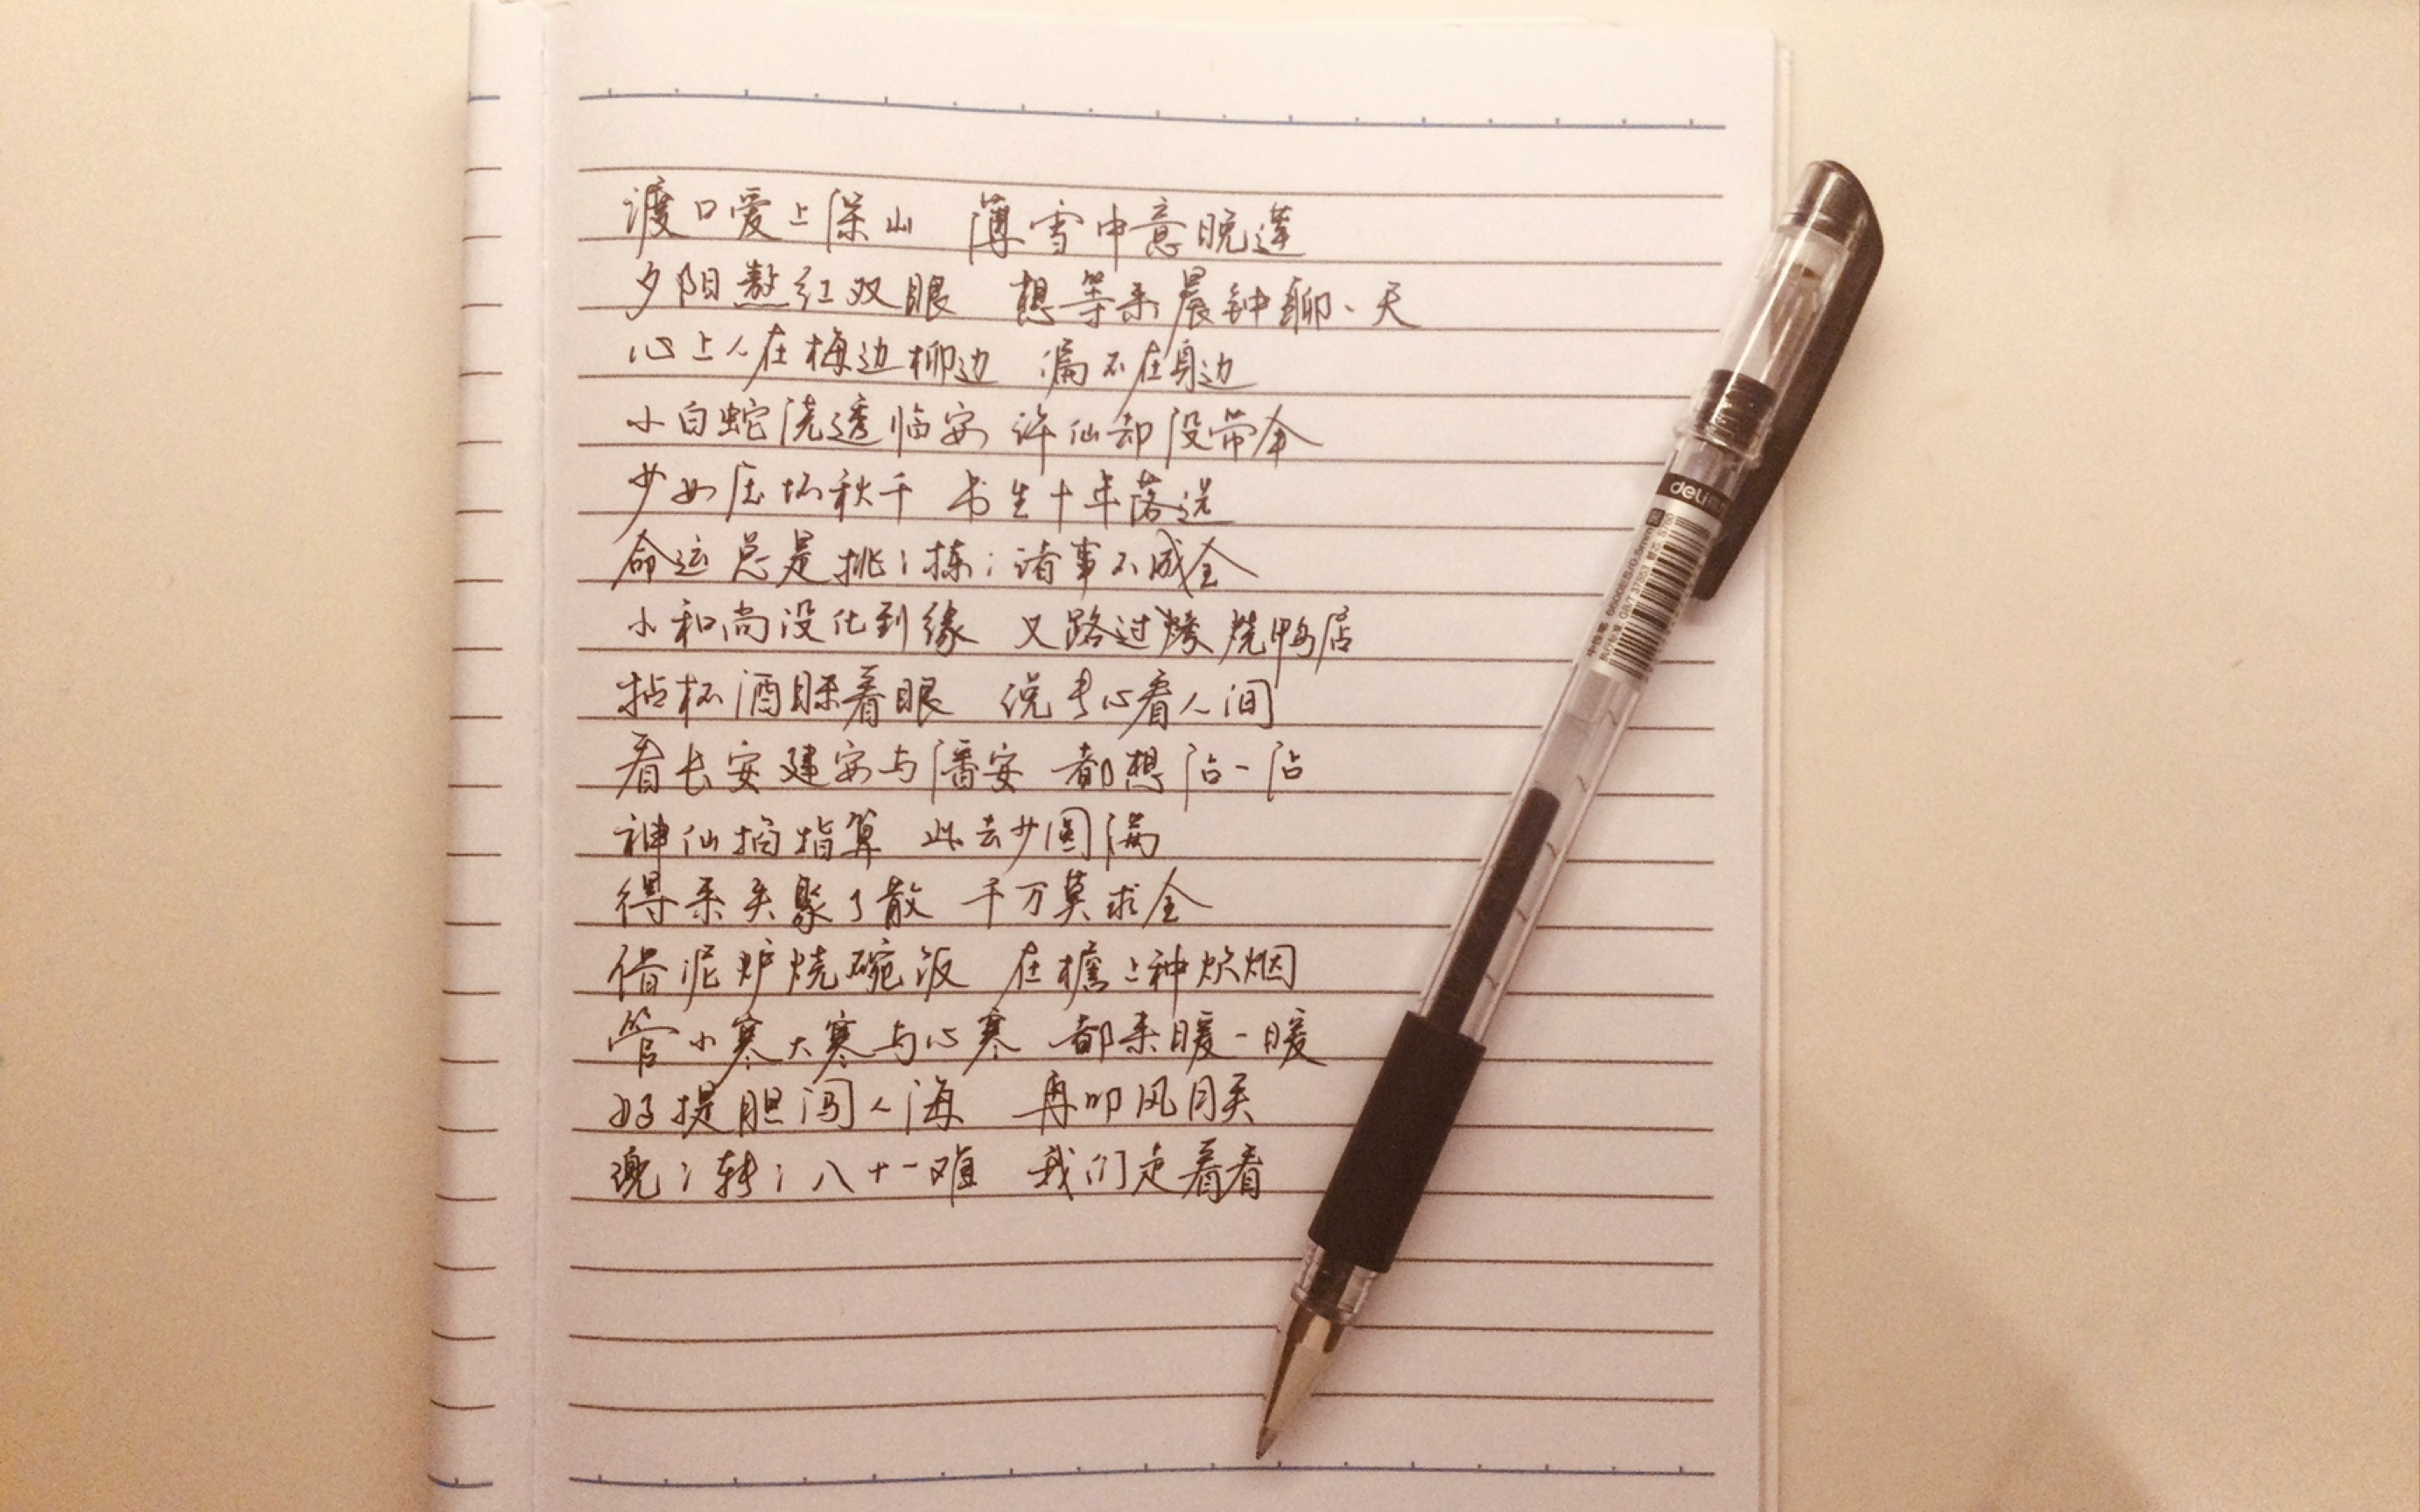 渡口爱上深山 薄雪中意晚莲
夕阳熬红双眼 想等来晨钟聊、天
心上人在梅边柳边 偏不在身边
小白蛇浇透临安 许仙却没带伞
少女压坏秋千 书生十年落选
命运总是挑㇀拣㇀诸事不成全
小和尚没化到缘 又路过烤烧鸭店
拈杯酒眯着眼 说专心看人间
看长安建安与潘安 都想沾一沾
神仙掐指算 此去少圆满
得来失聚了散 千万莫求全
借泥炉烧碗饭 在檐上种炊烟
管小寒大寒与心寒 都来暖一暖
好提胆闯人海 再叩风月关
兜㇀转㇀八十一难 我们走着看
deli